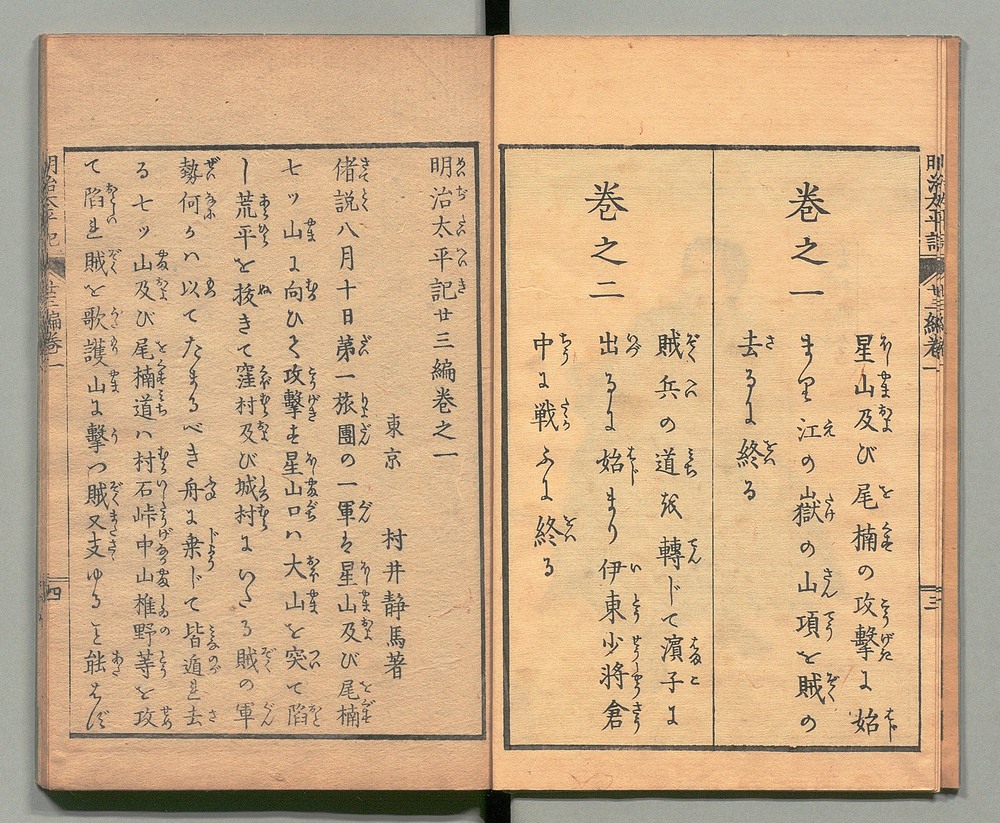 巻之一
星山及び尾楠の攻撃に始
まり江の嶽の山項を賊の
去るに終る
巻之二
賊兵の道を轉じて濱子に
出るに始まり伊東少将倉
中に戦ふに終る
明治太平記廿三編巻之一
東京 村井静馬著
偖説八月十日第一旅團の一軍は星山及び尾楠
七ッ山に向ひて攻撃す星山口ハ大山を突て陷
し荒平を抜きて窪村及び城村にいたる賊の軍
勢何かハ以てたまるべき舟に乗じて皆遁れ去
る七ッ山及び尾楠道ハ村石峠中山椎野等を攻
て陷れ賊を歌護山に擊つ賊又支ゆるを能はず
明治太平記 廿三編巻一 三
明治太平記 廿三編巻一 四